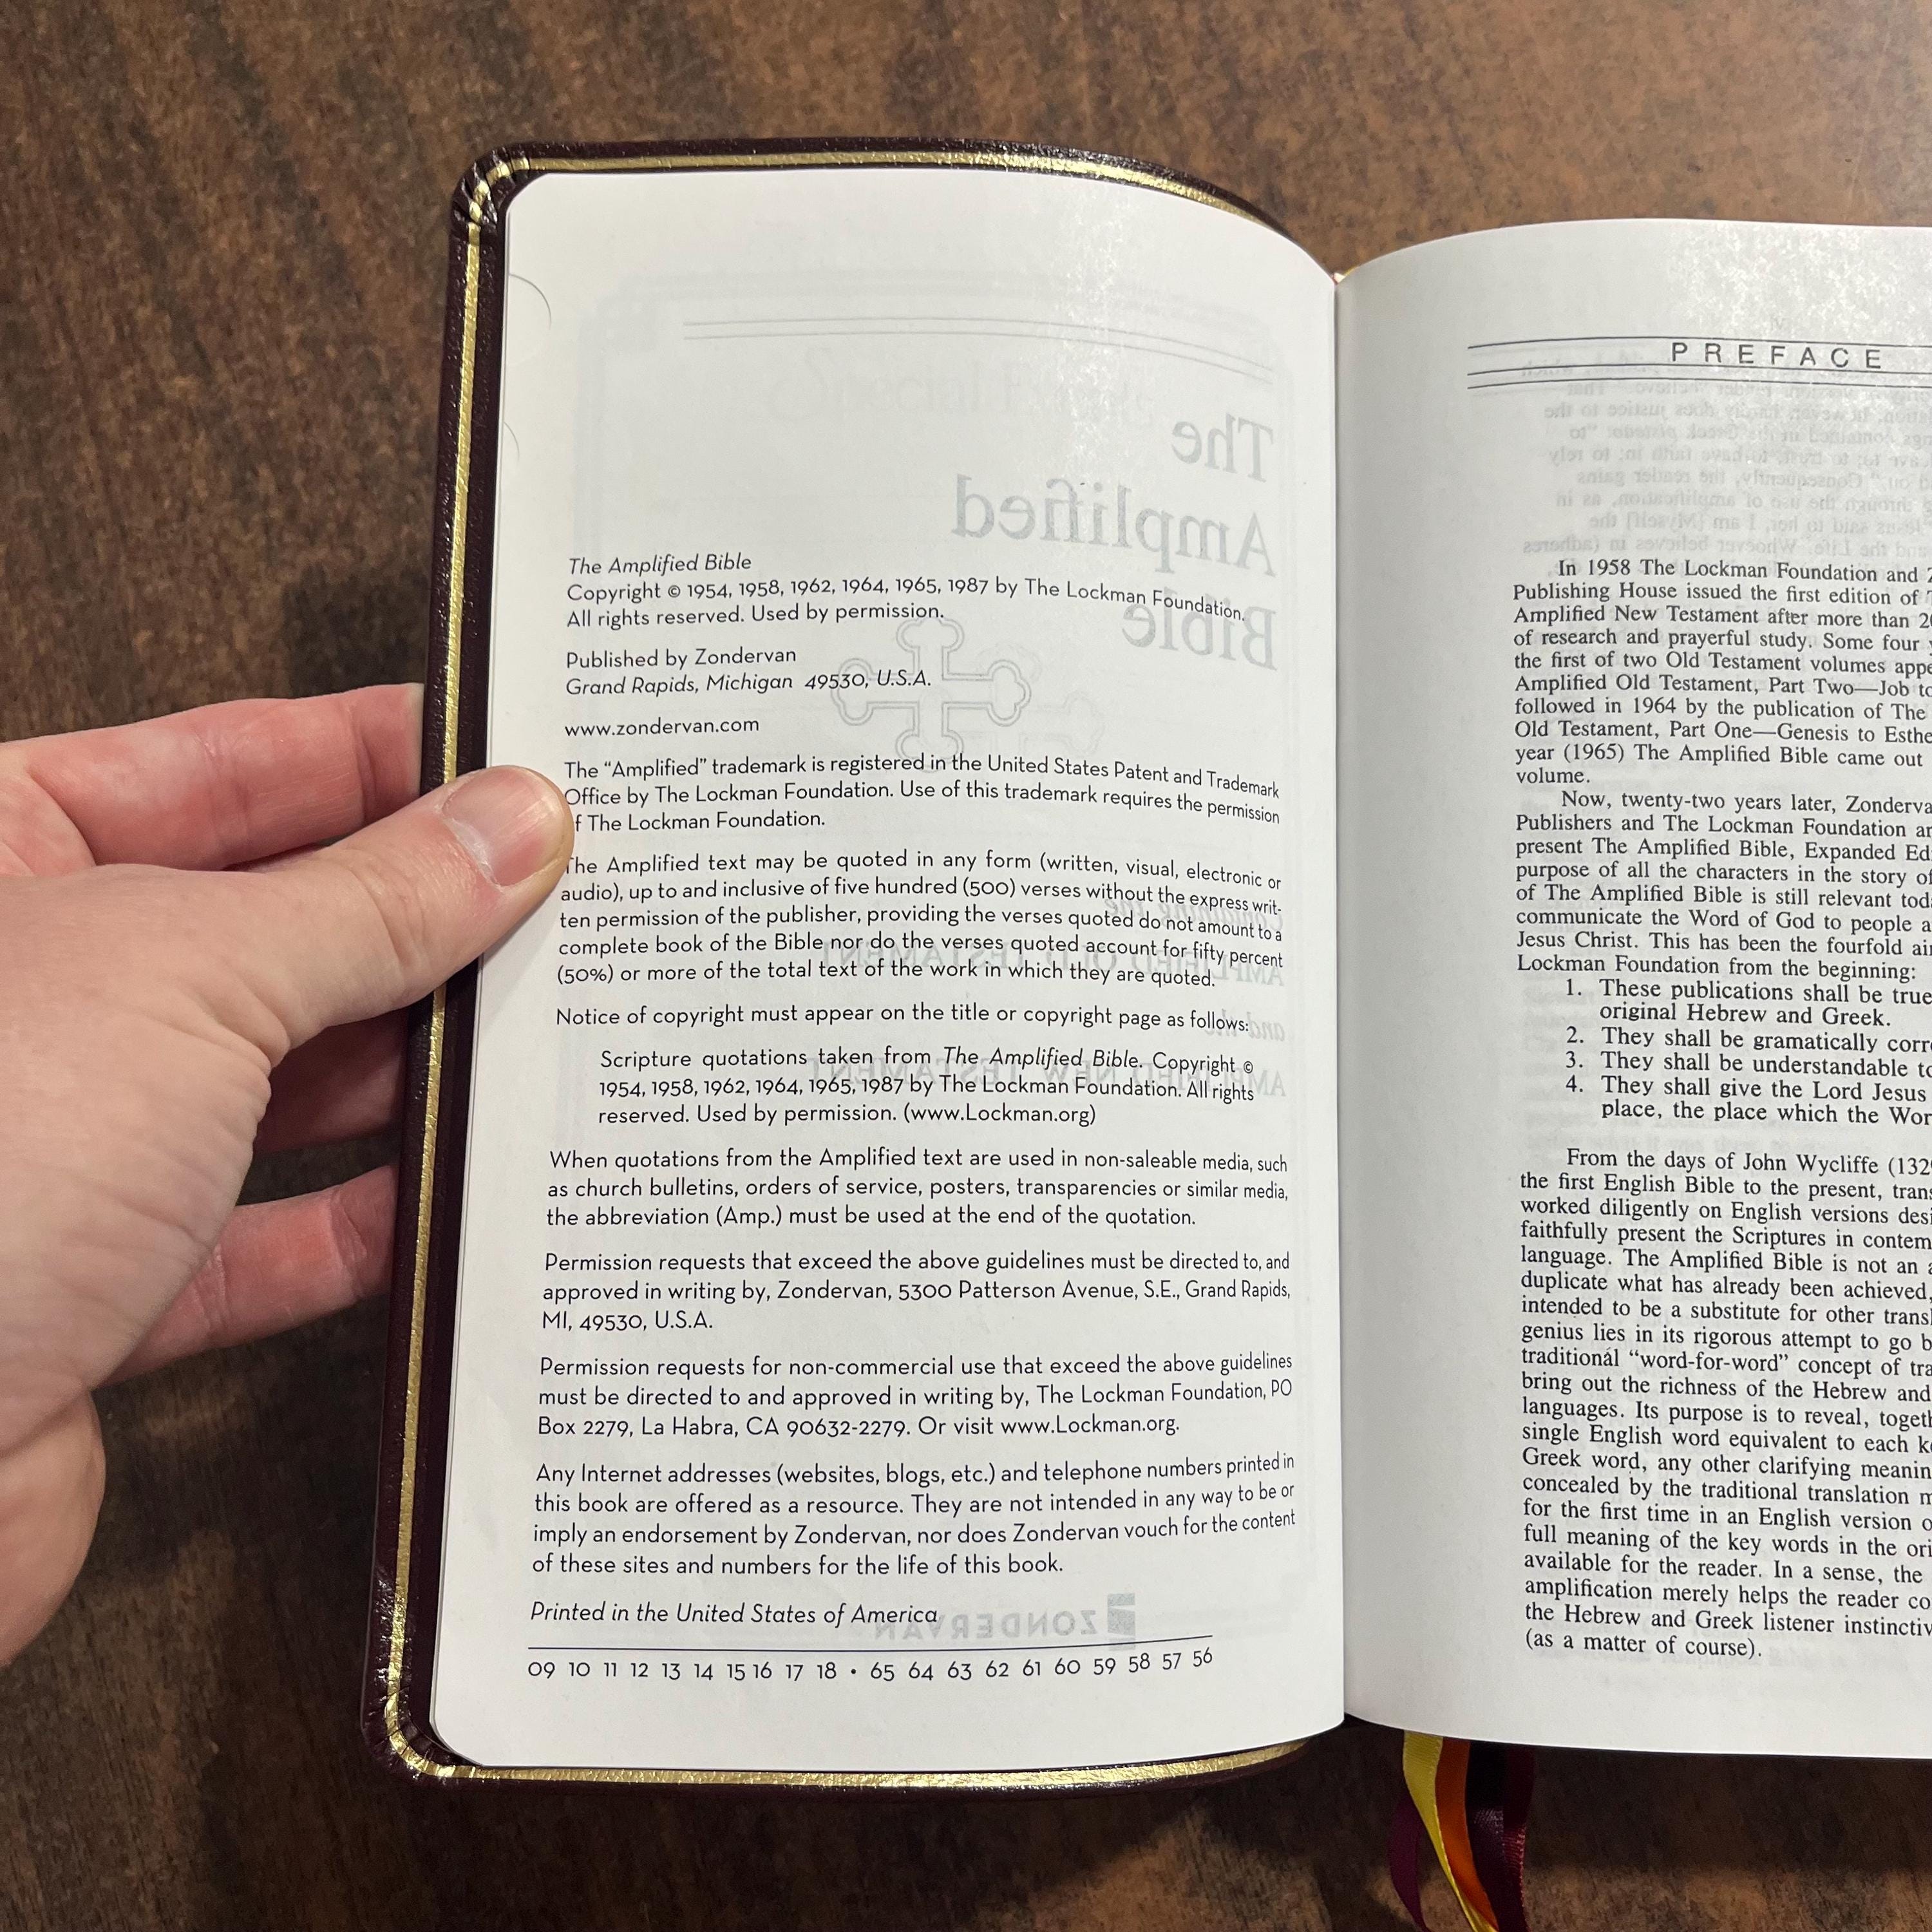 The Amplified Bible
Copyright © 1954, 1958, 1962, 1964, 1965, 1987 by The Lockman Foundation.
All rights reserved. Used by permission.
Published by Zondervan
Grand Rapids, Michigan 49530, U.S.A.
www.zondervan.com
The “Amplified” trademark is registered in the United States Patent and Trademark
Office by The Lockman Foundation. Use of this trademark requires the permission
f The Lockman Foundation.
The Amplified text may be quoted in any form (written, visual, electronic or
audio), up to and inclusive of five hundred (500) verses without the express writ-
ten permission of the publisher, providing the verses quoted do not amount to a
complete book of the Bible nor do the verses quoted account for fifty percent
(50%) or more of the total text of the work in which they are quoted.
Notice of copyright must appear on the title or copyright page as follows:
Scripture quotations taken from The Amplified Bible. Copyright ©
1954, 1958, 1962, 1964, 1965, 1987 by The Lockman Foundation. All rights
reserved. Used by permission. (www.Lockman.org)
When quotations from the Amplified text are used in non-saleable media, such
as church bulletins, orders of service, posters, transparencies or similar media,
the abbreviation (Amp.) must be used at the end of the quotation.
Permission requests that exceed the above guidelines must be directed to, and
approved in writing by, Zondervan, 5300 Patterson Avenue, S.E., Grand Rapids,
MI, 49530, U.S.A.
Permission requests for non-commercial use that exceed the above guidelines
must be directed to and approved in writing by, The Lockman Foundation, PO
Box 2279, La Habra, CA 90632-2279. Or visit www.Lockman.org.
Any Internet addresses (websites, blogs, etc.) and telephone numbers printed in
this book are offered as a resource. They are not intended in any way to be or
imply an endorsement by Zondervan, nor does Zondervan vouch for the content
of these sites and numbers for the life of this book.
Printed in the United States of America
09 10 11 12 13 14 15 16 17 18 • 65 64 63 62 61 60 59 58 57 56
PREFACE
In 1958 The Lockman Foundation and
Publishing House issued the first edition of
Amplified New Testament after more than
of research and prayerful study. Some four
the first of two Old Testament volumes
Amplified Old Testament, Part Two—Job to
followed in 1964 by the publication of The
Old Testament, Part One—Genesis to
year (1965) The Amplified Bible came out
volume.
Now, twenty-two years later,
Publishers and The Lockman Foundation
present The Amplified Bible, Expanded
purpose of all the characters in the story of
of The Amplified Bible is still relevant
communicate the Word of God to people
Jesus Christ. This has been the fourfold
Lockman Foundation from the beginning:
1. These publications shall be true
original Hebrew and Greek.
2. They shall be gramatically
3. They shall be understandable to
4. They shall give the Lord Jesus
place, the place which the
From the days of John Wycliffe
the first English Bible to the present,
worked diligently on English versions
faithfully present the Scriptures in
language. The Amplified Bible is not an
duplicate what has already been achieved,
intended to be a substitute for other
genius lies in its rigorous attempt to go
traditional “word-for-word” concept of
bring out the richness of the Hebrew and
languages. Its purpose is to reveal,
single English word equivalent to each
Greek word, any other clarifying
concealed by the traditional translation
for the first time in an English version
full meaning of the key words in the
available for the reader. In a sense, the
amplification merely helps the reader
the Hebrew and Greek listener
(as a matter of course).